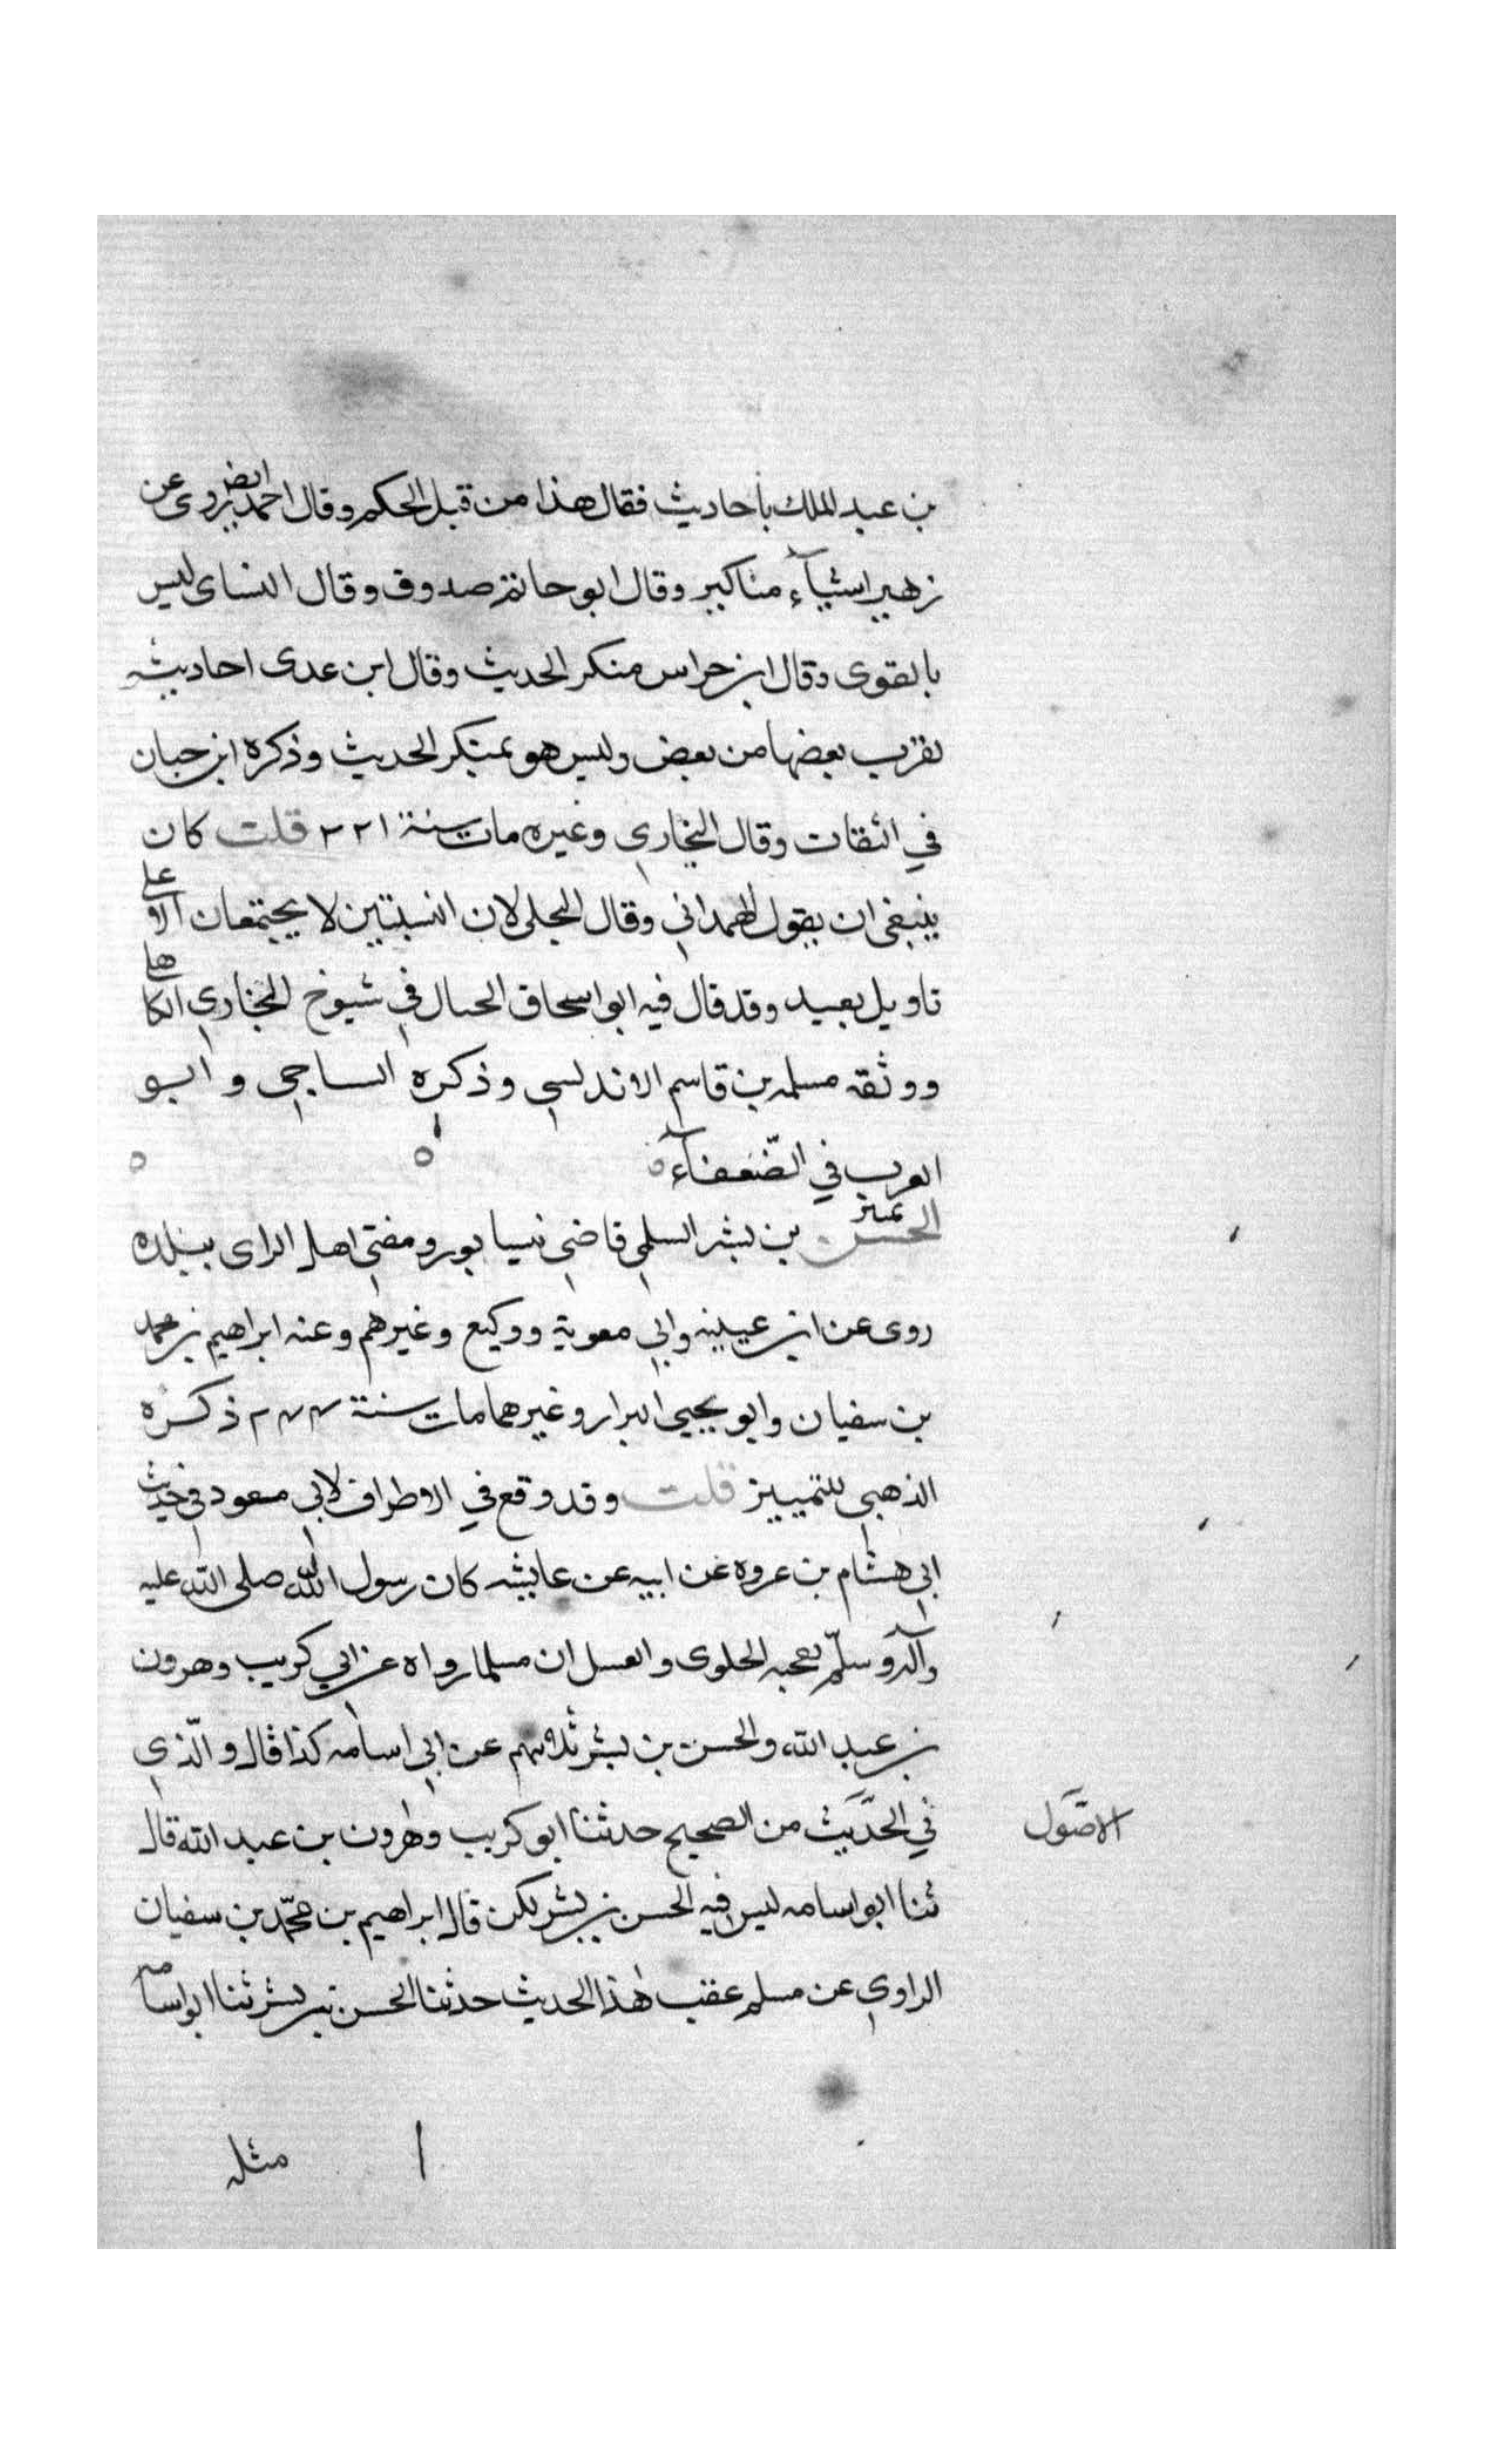 بن عبد الملك بأحاديث فقال هذا من قبل الحكم وقال احمد ايضا روى عن
زهير اشيآء مناكير وقال ابو حاتم صدوق وقال النساى ليس
بالقوى وقال ابن خراس منكر الحديث وقال ابن عدى احاديثه
يقرب بعضها من بعض وليس هو بمنكر الحديث وذكره ابن حبان
في الثقات وقال البخاري وغيره مات سنة ٢٢١ قلت كان
ينبغى ان يقول الهمداني وقال البجلى لان النسبتين لا يجتمعان الا على
تاويل بعيد وقد قال فيه ابو اسحاق الحبال في شيوخ البخاري الكاهلي
ووثقه مسلمه بن قاسم الاندلسي وذكره الساجي وابو
العرب في الضّعفآء
تمييز
الحسن بن بشر السلمي قاضي نيسابور ومفتي اهل الراى ببلده
روى عن ابن عيينه وابي معوية ووكيع وغيرهم وعنه ابراهيم بن محمد
بن سفيان وابو يحيى البزار وغيرهما مات سنة ٢٤٤ ذكره
الذهبي للتمييز قلت وقد وقع في الاطراف لابي مسعود في حديث
ابي هشام بن عروه عن ابيه عن عايشه كان رسول الله صلى الله عليه
وآله وسلّم يعجبه الحلوى والعسل ان مسلما رواه عن ابي كريب وهرون
بن عبد الله والحسن بن بشر ثلاثتهم عن ابي اسامه كذا قال والّذي
في الحديث من الصحيح حدثنا ابو كريب وهرون بن عبد الله قالا
الاصول
ثنا ابو اسامه ليس فيه الحسن بن بشر لكن قال ابراهيم بن محمّد بن سفيان
الراوي عن مسلم عقب هذا الحديث حدثنا الحسن بن بشر ثنا ابو اسامه
مثله